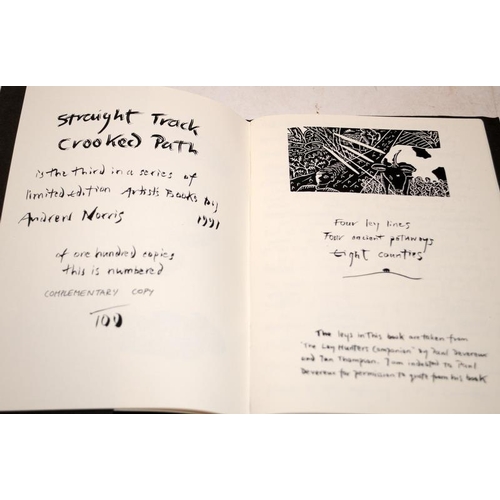 Straight Track
Crooked Path
is the third in a series of
limited edition Artists Books by
Andrew Norris 1991
of one hundred copies
this is numbered
COMPLEMENTARY COPY
/100
Four ley lines
Four ancient pathways
Eight counties
The leys in this book are taken from
'The Ley Hunters Companion' by Paul Devereux
and Ian Thompson. I am indebted to Paul
Devereux for permission to quote from his book